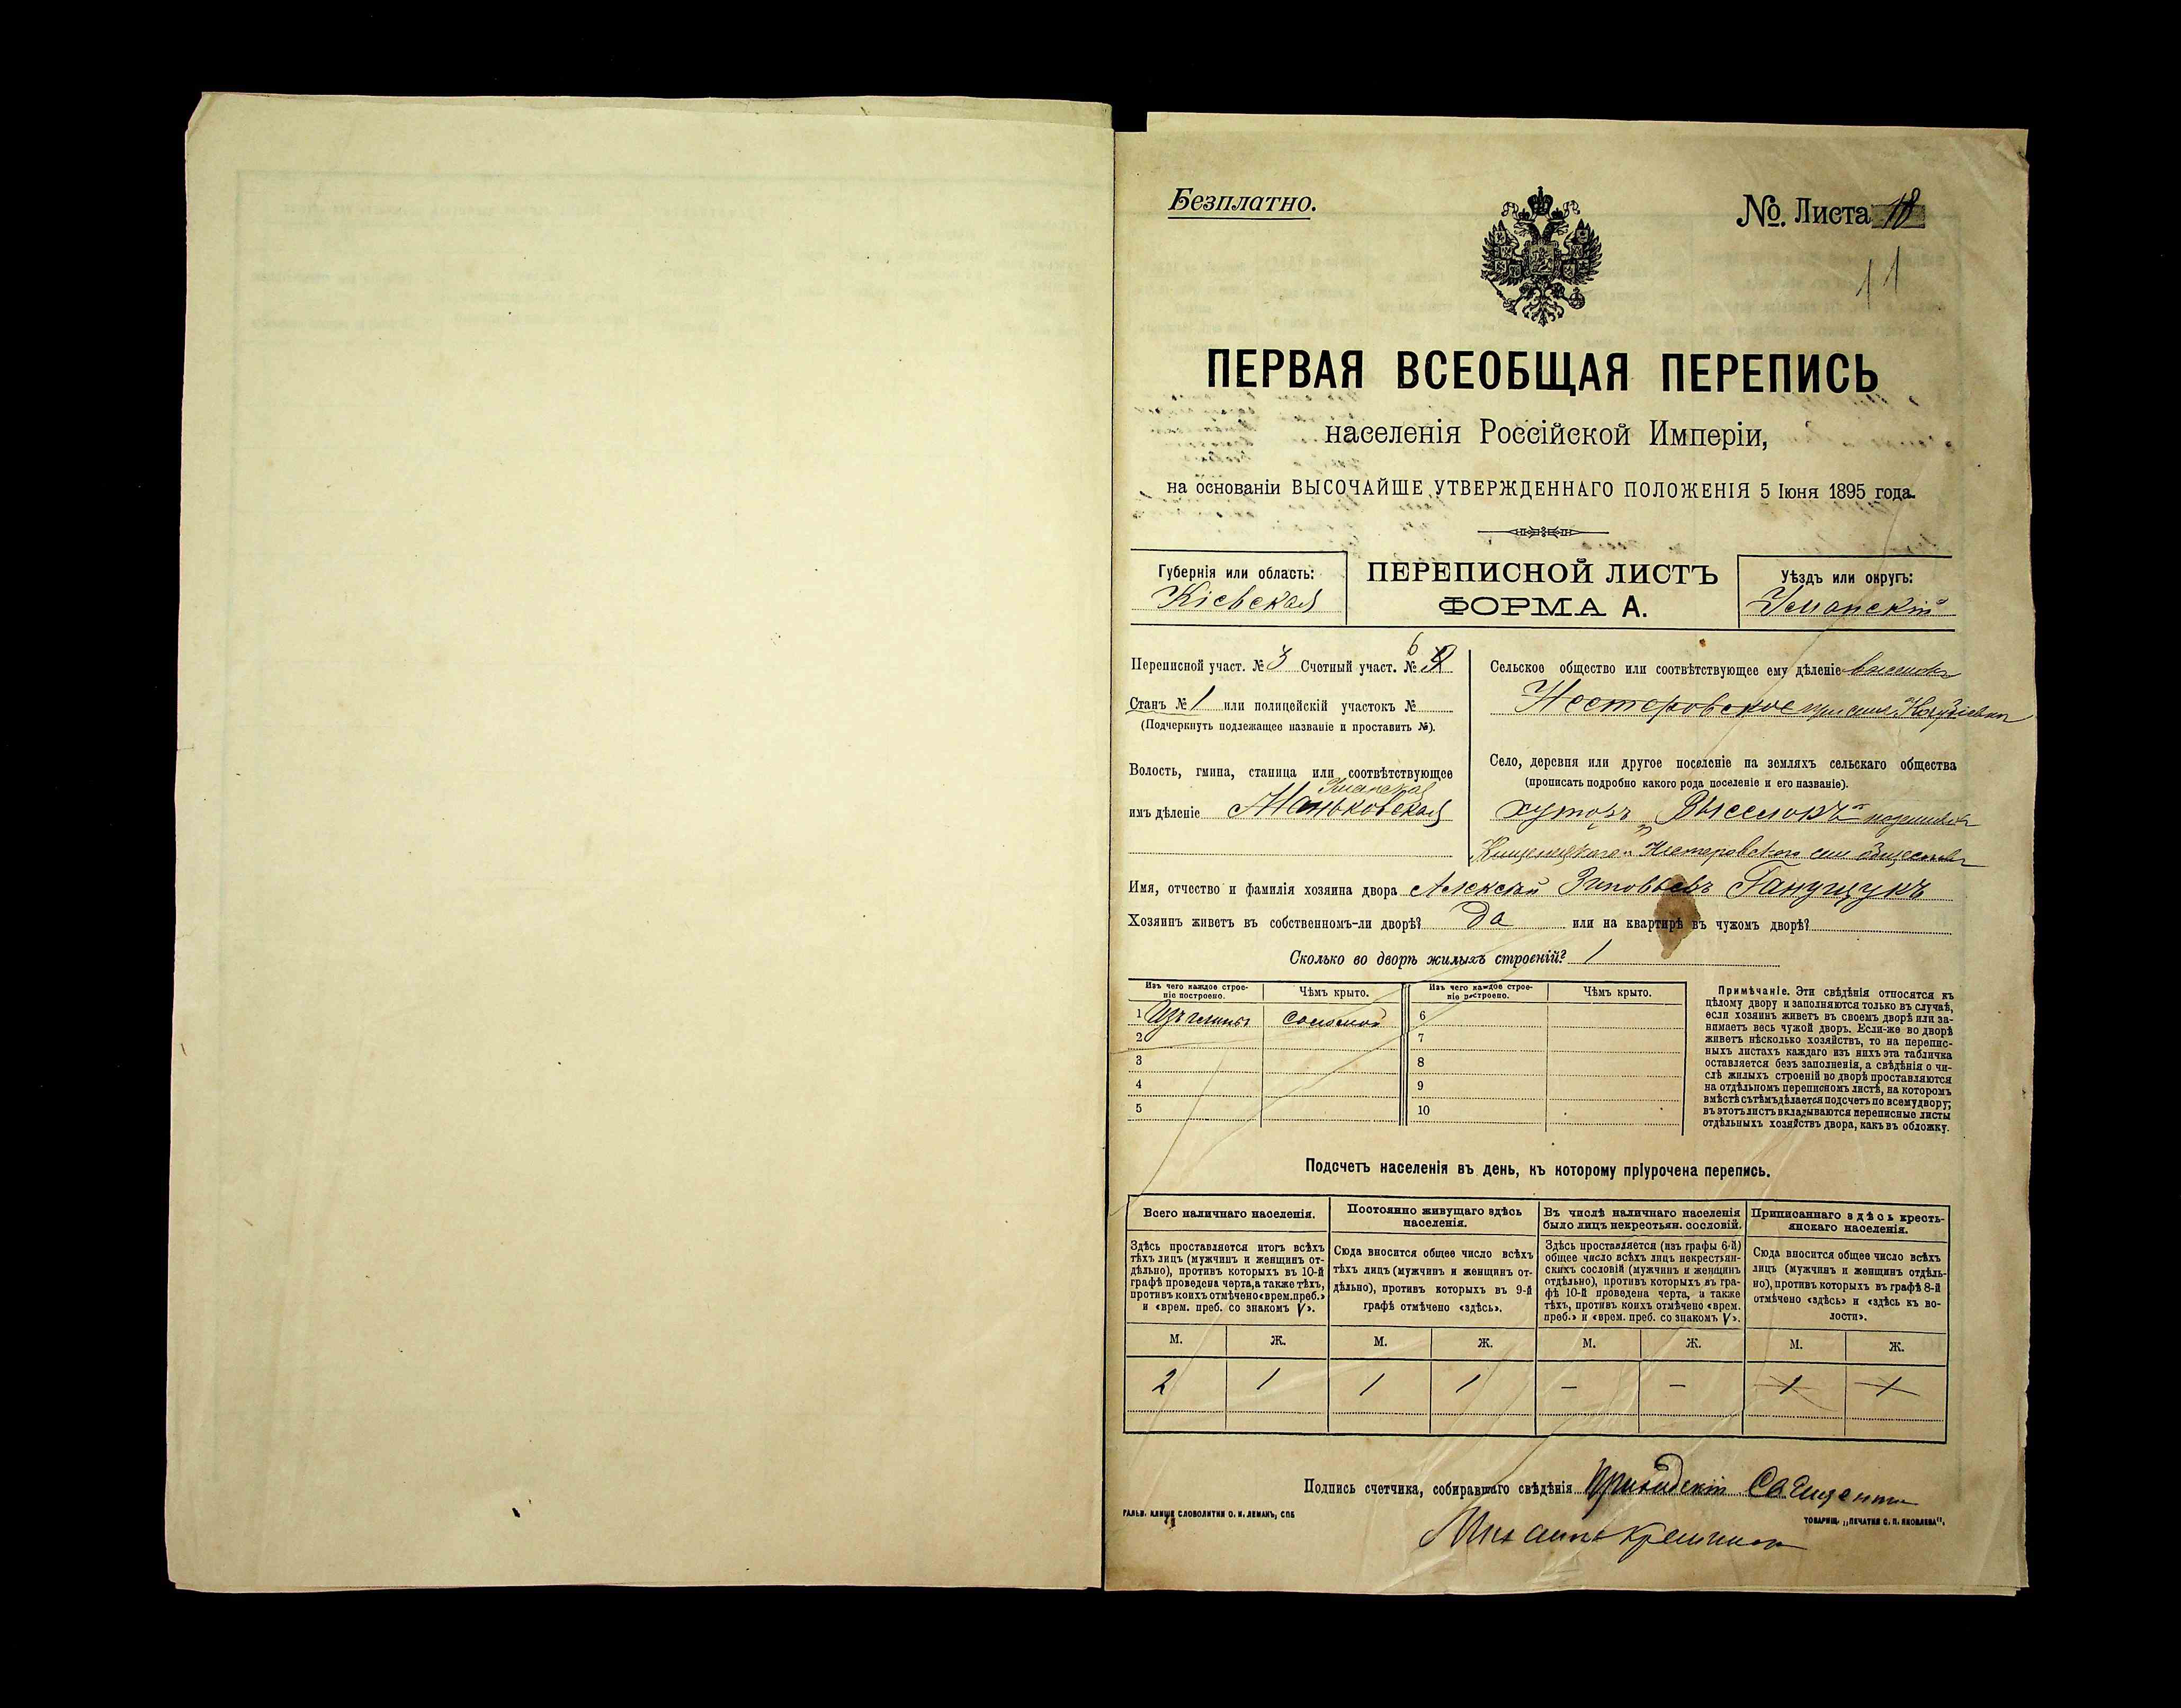 Безплатно.
№ Листа 18
11
ПЕРВАЯ ВСЕОБЩАЯ ПЕРЕПИСЬ
населенія Россійской Имперіи,
на основаніи ВЫСОЧАЙШЕ УТВЕРЖДЕННАГО ПОЛОЖЕНІЯ 5 Іюня 1895 года.
Губернія или область:
Кіевская
ПЕРЕПИСНОЙ ЛИСТЪ
ФОРМА А.
Уѣздъ или округъ:
Уманскій
Переписной участ. № 3 Счетный участ. № 6
Станъ № 1 или полицейскій участокъ №
(Подчеркнуть подлежащее названіе и проставить №).
Волость, гмина, станица или соотвѣтствующее
Уманская
имъ дѣленіе Маньковская
Сельское общество или соотвѣтствующее ему дѣленіе
Нестеровское при
Село, деревня или другое поселеніе на земляхъ сельскаго общества
(прописать подробно какого рода поселеніе и его названіе).
хуторъ Выселокъ
Нестеровского
Имя, отчество и фамилія хозяина двора Алексѣй Зиновьевъ Ганущукъ
Хозяинъ живетъ въ собственномъ-ли дворѣ? Да или на квартирѣ въ чужомъ дворѣ?
Сколько во дворѣ жилыхъ строеній? 1
Изъ чего каждое строе-
ніе построено.
Чѣмъ крыто.
Изъ чего каждое строе-
ніе построено.
Чѣмъ крыто.
1 Изъ глины соломой 6
2 7
3 8
4 9
5 10
Примѣчаніе. Эти свѣдѣнія относятся къ
цѣлому двору и заполняются только въ случаѣ,
если хозяинъ живетъ въ своемъ дворѣ или за-
нимаетъ весь чужой дворъ. Если-же во дворѣ
живетъ нѣсколько хозяйствъ, то на перепис-
ныхъ листахъ каждаго изъ нихъ эта табличка
оставляется безъ заполненія, а свѣдѣнія о чи-
слѣ жилыхъ строеній во дворѣ проставляются
на отдѣльномъ переписномъ листѣ, на которомъ
вмѣстѣ съ тѣмъ дѣлается подсчетъ по всему двору;
въ этотъ листъ вкладываются переписные листы
отдѣльныхъ хозяйствъ двора, какъ въ обложку.
Подсчетъ населенія въ день, къ которому пріурочена перепись.
Всего наличнаго населенія.
Здѣсь проставляется итогъ всѣхъ
тѣхъ лицъ (мужчинъ и женщинъ от-
дѣльно), противъ которыхъ въ 10-й
графѣ проведена черта, а также тѣхъ,
противъ коихъ отмѣчено «врем. преб.»
и «врем. преб. со знакомъ V».
Постоянно живущаго здѣсь
населенія.
Сюда вносится общее число всѣхъ
тѣхъ лицъ (мужчинъ и женщинъ от-
дѣльно), противъ которыхъ въ 9-й
графѣ отмѣчено «здѣсь».
Въ числѣ наличнаго населенія
было лицъ некрестьян. сословій.
Здѣсь проставляется (изъ графы 6-й)
общее число всѣхъ лицъ некрестьян-
скихъ сословій (мужчинъ и женщинъ
отдѣльно), противъ которыхъ въ гра-
фѣ 10-й проведена черта, а также
тѣхъ, противъ коихъ отмѣчено «врем.
преб.» и «врем. преб. со знакомъ V».
Приписаннаго здѣсь кресть-
янскаго населенія.
Сюда вносится общее число всѣхъ
лицъ (мужчинъ и женщинъ отдѣль-
но), противъ которыхъ въ графѣ 8-й
отмѣчено «здѣсь» и «здѣсь къ во-
лости».
М. Ж. М. Ж. М. Ж. М. Ж.
2 1 1 1 – – 1 1
Подпись счетчика, собиравшаго свѣдѣнія
ГАЛЬВ. КЛИШЕ СЛОВОЛИТНИ О. И. ЛЕМАНЪ, СПБ
ТОВАРИЩ. „ПЕЧАТНЯ С. П. ЯКОВЛЕВА".